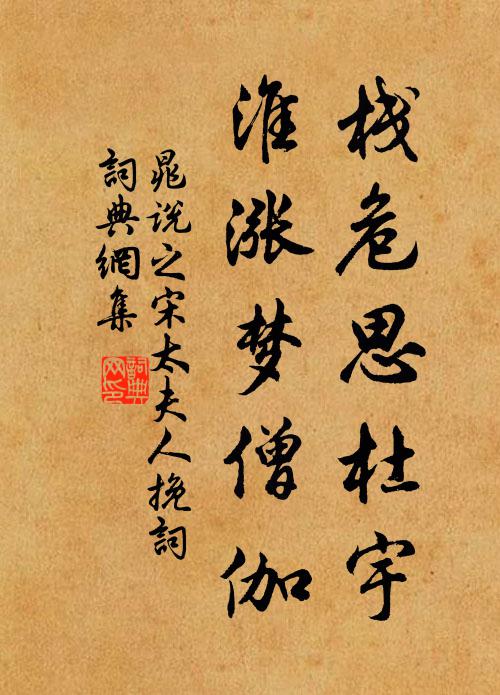 栈危思杜宇
淮涨梦僧伽
晁说之宋太夫人挽詞
詞典網集
詞典网印